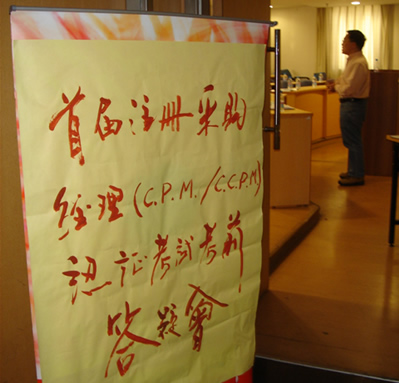 首届注册采购
经理(C.P.M./C.C.P.M)
認证考試考前
答疑會